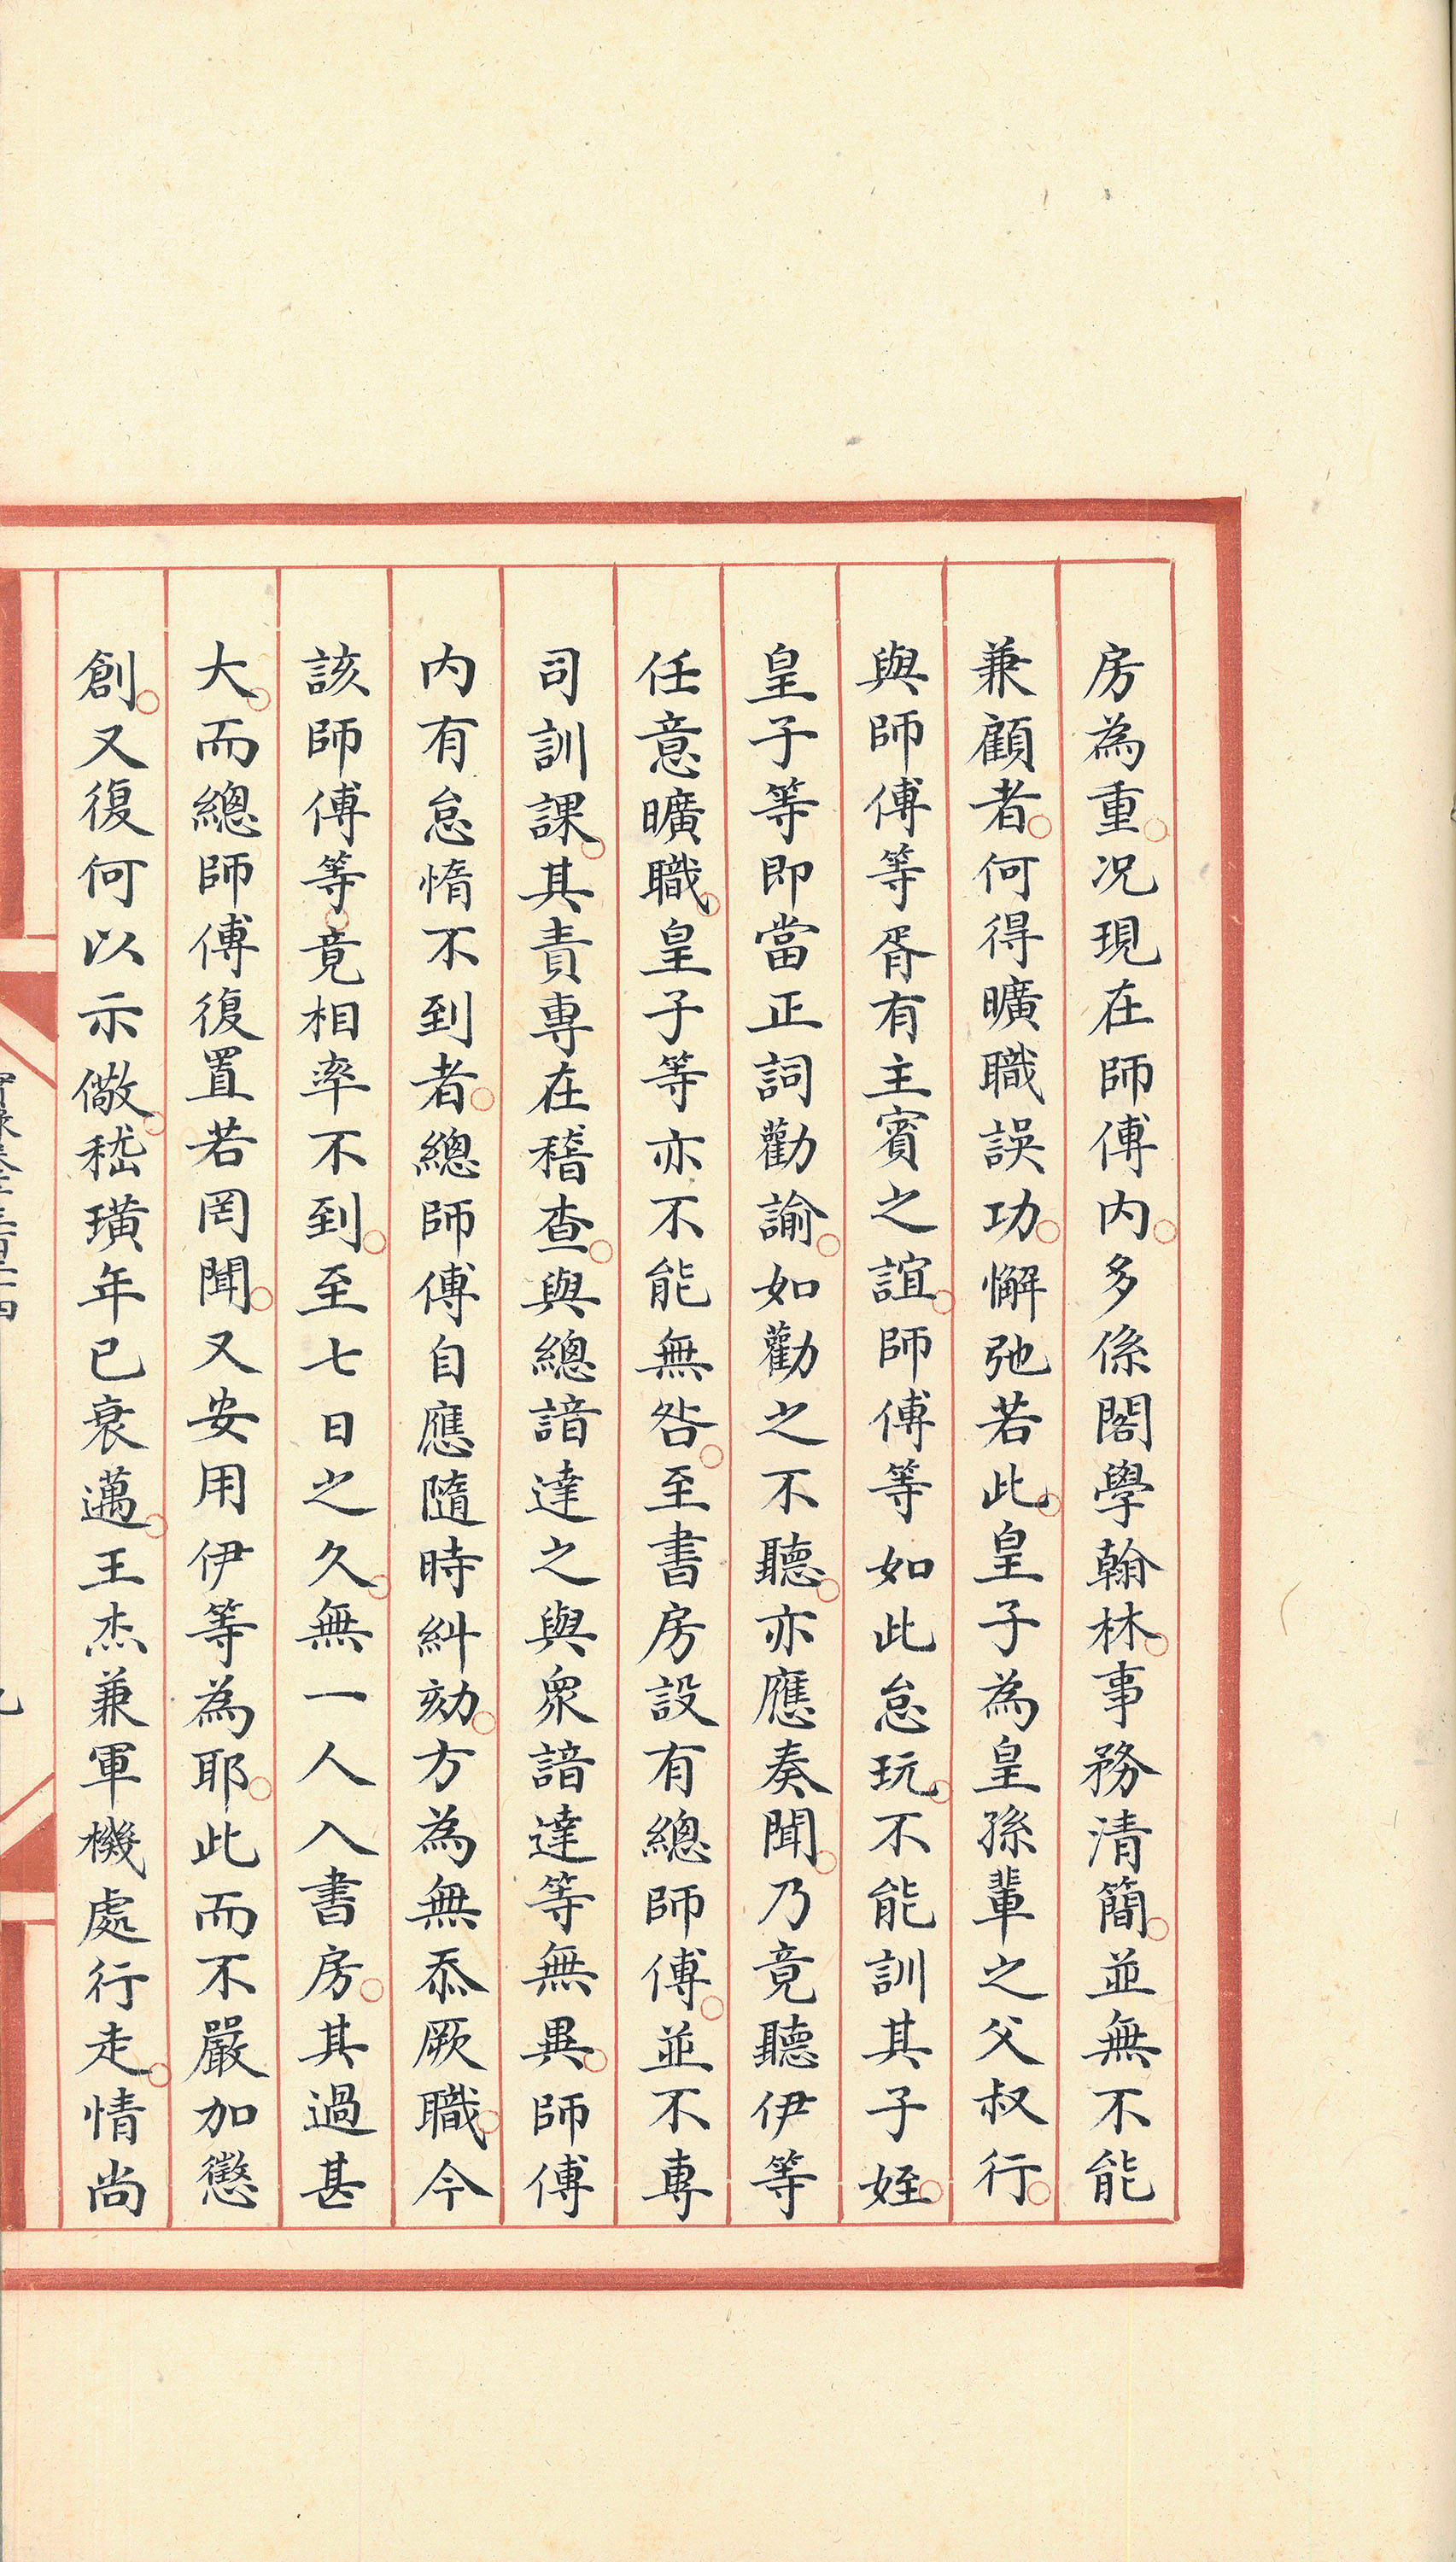 房為重。况現在師傅内。多係閣學翰林。事務清簡。並無不能
兼顧者。何得曠職誤功。懈弛若此。皇子為皇孫輩之父叔行。
與師傅等胥有主賓之誼。師傅等如此怠玩。不能訓其子姪。
皇子等即當正詞勸諭。如勸之不聽。亦應奏聞。乃竟聽伊等
任意曠職。皇子等亦不能無咎。至書房設有總師傅。並不專
司訓課。其責專在稽查。與總諳達之與衆諳達等無異。師傅
内有怠惰不到者。總師傅自應隨時糾劾。方為無忝厥職。今
該師傅等。竟相率不到。至七日之久。無一人入書房。其過甚
大。而總師傅復置若罔聞。又安用伊等為耶。此而不嚴加懲
創。又復何以示儆。嵇璜年已衰邁。王杰兼軍機處行走。情尚